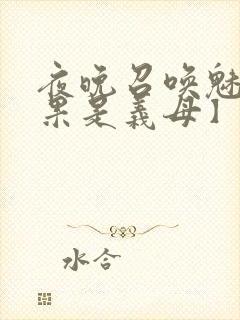 夜晚召唤魅
果是義母】
水合